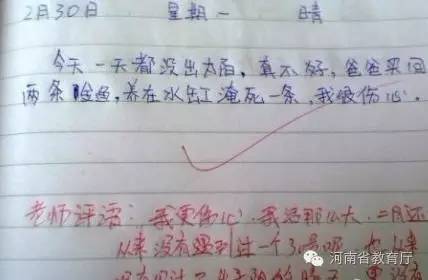 2月30日 星期一 晴
今天一天都没出太阳,真不好,爸爸买回
两条金鱼,养在水缸淹死一条,我很伤心.
老师评语:我更伤心.我活那么大.二月还
从来没有遇到过一个30号呢
河南省教育厅